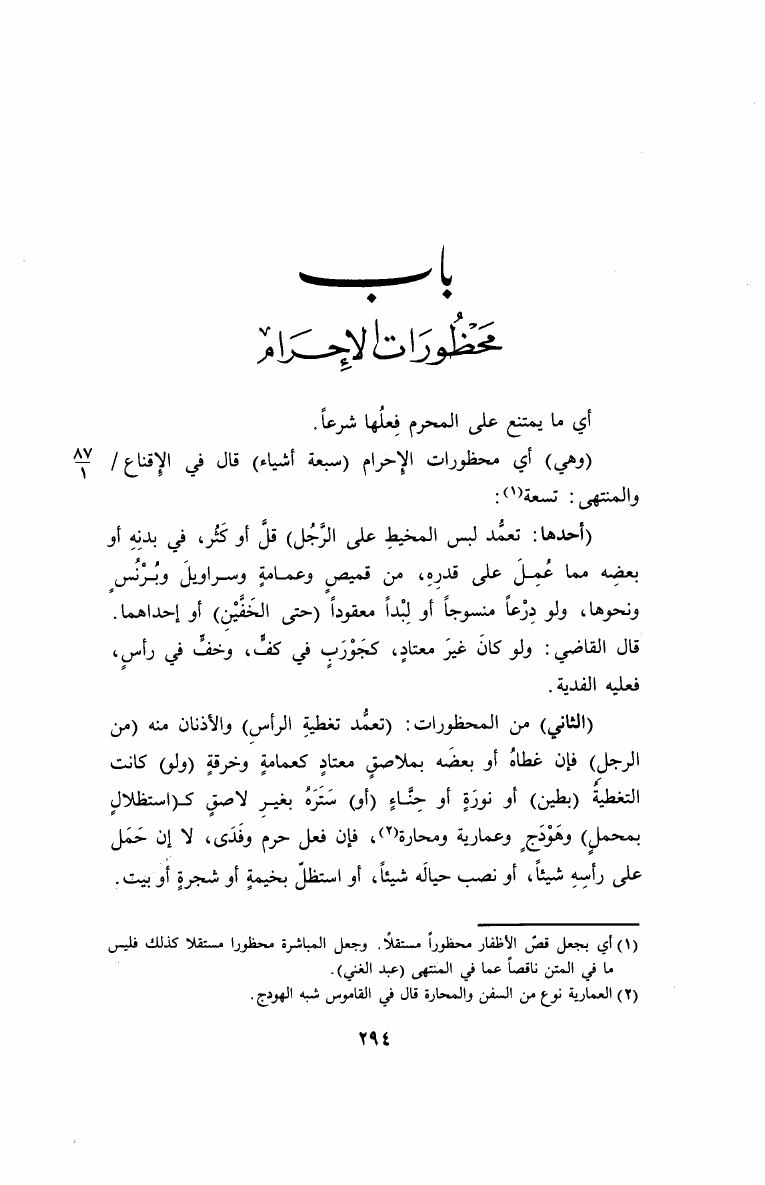 باب
مَحْظُورَات الإِحرَام
أي ما يمتنع على المحرم فِعلُها شرعاً.
(وهي) أي محظورات الإحرام (سبعة أشياء) قال في الإقناع / ٨٧/١
والمنتهى: تسعة(١):
(أحدها: تعمُّد لبس المخيطِ على الرَّجُل) قلَّ أو كَثُر، في بدنِهِ أو
بعضِه مما عُمِلَ على قدرِهِ، من قميصٍ وعمامةٍ وسراويلَ وبُرْنُسٍ
ونحوها، ولو دِرْعاً منسوجاً أو لِبْداً معقوداً (حتى الخَفَّيْنِ) أو إحداهما.
قال القاضي: ولو كانَ غيرَ معتادٍ، كجَوْرَبٍ في كفٍّ، وخفٍّ في رأسٍ،
فعليه الفدية.
(الثاني) من المحظورات: (تعمُّد تغطيةِ الرأسِ) والأذنان منه (من
الرجلِ) فإن غطاهُ أو بعضَه بملاصقٍ معتادٍ كعمامةٍ وخرقةٍ (ولو) كانت
التغطيةُ (بطين) أو نورَةٍ أو حِنَّاءٍ (أو) سَتَرَهُ بغيرِ لاصقٍ كـ(استظلالٍ
بمحملٍ) وهَوْدَجٍ وعمارية ومحارة(٢)، فإن فعل حرم وفَدَى، لا إن حَمَل
على رأسِهِ شيئاً، أو نصب حيالَه شيئاً، أو استظلّ بخيمةٍ أو شجرةٍ أو بيت.
(١) أي بجعل قصّ الأظفار محظوراً مستقلاً. وجعل المباشرة محظورا مستقلا كذلك فليس
ما في المتن ناقصاً عما في المنتهى (عبد الغني).
(٢) العمارية نوع من السفن والمحارة قال في القاموس شبه الهودج.
٢٩٤